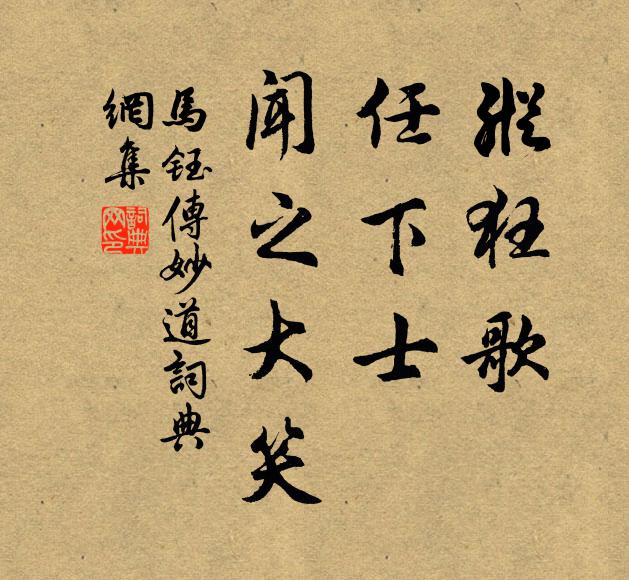 縱狂歌
任下士
聞之大笑
馬鈺傳妙道詞典
網集
詞典
网印